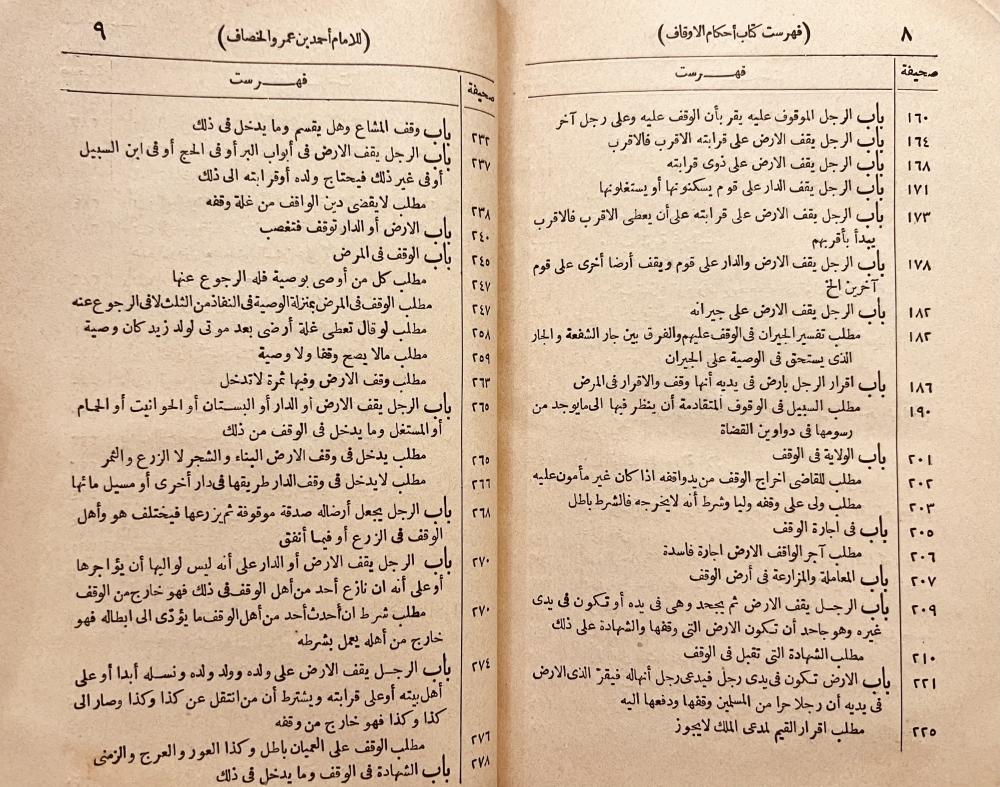 ٨
(فهرست كتاب أحكام الاوقاف)
صحيفة
فهـــرست
١٦٠ باب الرجل الموقوف عليه يقر بأن الوقف عليه وعلى رجل آخر
١٦٤ باب الرجل يقف الارض على قرابته الاقرب فالاقرب
١٦٨ باب الرجل يقف الارض على ذوى قرابته
١٧١ باب الرجل يقف الدار على قوم يسكنونها أو يستغلونها
١٧٣ باب الرجل يقف الارض على قرابته على أن يعطى الاقرب فالاقرب
يبدأ بأقربهم
١٧٨ باب الرجل يقف الارض والدار على قوم ويقف أرضا أخرى على قوم
آخرين الخ
١٨٢ باب الرجل يقف الارض على جيرانه
١٨٢ مطلب تفسير الجيران فى الوقف عليهم والفرق بين جار الشفعة والجار
الذى يستحق فى الوصية على الجيران
١٨٦ باب اقرار الرجل بارض فى يديه أنها وقف والاقرار فى المرض
١٩٠ مطلب السبيل فى الوقوف المتقادمة أن ينظر فيها الى ما يوجد من
رسومها فى دواوين القضاة
٢٠١ باب الولاية فى الوقف
٢٠٢ مطلب للقاضى اخراج الوقف من يد واقفه اذا كان غير مأمون عليه
٢٠٣ مطلب ولى على وقفه وليا وشرط أنه لا يخرجه فالشرط باطل
٢٠٥ باب فى اجارة الوقف
٢٠٦ مطلب آجر الواقف الارض اجارة فاسدة
٢٠٧ باب المعاملة والمزارعة فى أرض الوقف
٢٠٩ باب الرجـل يقف الارض ثم يجحد وهى فى يده أو تكون فى يدى
غيره وهو جاحد أن تكون الارض التى وقفها والشهادة على ذلك
٢١٠ مطلب الشهادة التى تقبل فى الوقف
٢٢١ باب الارض تكون فى يدى رجل فيدعى رجل أنها له فيقرّ الذى الارض
فى يديه أن رجلا حرا من المسلمين وقفها ودفعها اليه
٢٢٥ مطلب اقرار القيم لمدعى الملك لايجوز
(للامام أحمد بن عمر والخصاف)
٩
صحيفة
فهـــرست
٢٣٢ باب وقف المشاع وهل يقسم وما يدخل فى ذلك
٢٣٧ باب الرجل يقف الارض فى أبواب البر أو فى الحج أو فى ابن السبيل
أو فى غير ذلك فيحتاج ولده أو قرابته الى ذلك
٢٣٨ مطلب لايقضى دين الواقف من غلة وقفه
٢٤٠ باب الارض أو الدار توقف فتغصب
٢٤٥ باب الوقف فى المرض
٢٤٧ مطلب كل من أوصى بوصية فله الرجوع عنها
٢٤٧ مطلب الوقف فى المرض بمنزلة الوصية فى النفاذ من الثلث لا فى الرجوع عنه
٢٥٨ مطلب لو قال تعطى غلة أرضى بعد موتى لولد زيد كان وصية
٢٥٩ مطلب مالا يصح وقفا ولا وصية
٢٦٣ مطلب وقف الارض وفيها ثمرة لاتدخل
٢٦٥ باب الرجل يقف الارض أو الدار أو البستان أو الحوانيت أو الحمام
أو المستغل وما يدخل فى الوقف من ذلك
٢٦٥ مطلب يدخل فى وقف الارض البناء والشجر لا الزرع والثمر
٢٦٦ مطلب لايدخل فى وقف الدار طريقها فى دار أخرى أو مسيل مائها
٢٦٨ باب الرجل يجعل أرضا له صدقة موقوفة ثم يزرعها فيختلف هو وأهل
الوقف فى الزرع أو فيما أنفق
٢٧٠ باب الرجل يقف الارض أو الدار على أنه ليس لواليها أن يؤاجرها
أو على أنه ان نازع أحد من أهل الوقف فى ذلك فهو خارج من الوقف
٢٧٠ مطلب شرط ان أحدث أحد من أهل الوقف ما يؤدّى الى ابطاله فهو
خارج من أهله يعمل بشرطه
٢٧٤ باب الرجـل يقف الارض على ولده وولد ولده ونسله أبدا أو على
أهل بيته أو على قرابته ويشترط أن من انتقل عن كذا وكذا وصار الى
كذا وكذا فهو خارج من وقفه
٢٧٦ مطلب الوقف على العميان باطل وكذا العور والعرج والزمنى
٢٧٨ باب الشهادة فى الوقف وما يدخل فى ذلك